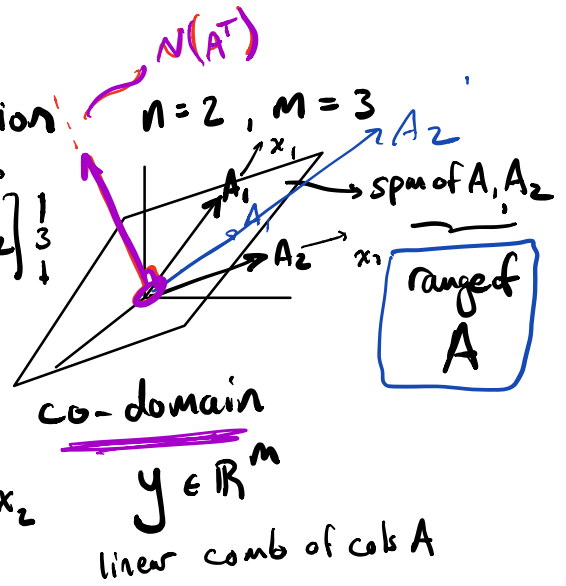 N(Aᵀ)
ion
n = 2 , m = 3
A₂
x₁
A₁
A₁
span of A₁, A₂
2] 3
A₂
x₂
range of
A
co-domain
y ∈ ℝᵐ
x₂
linear comb of cols A